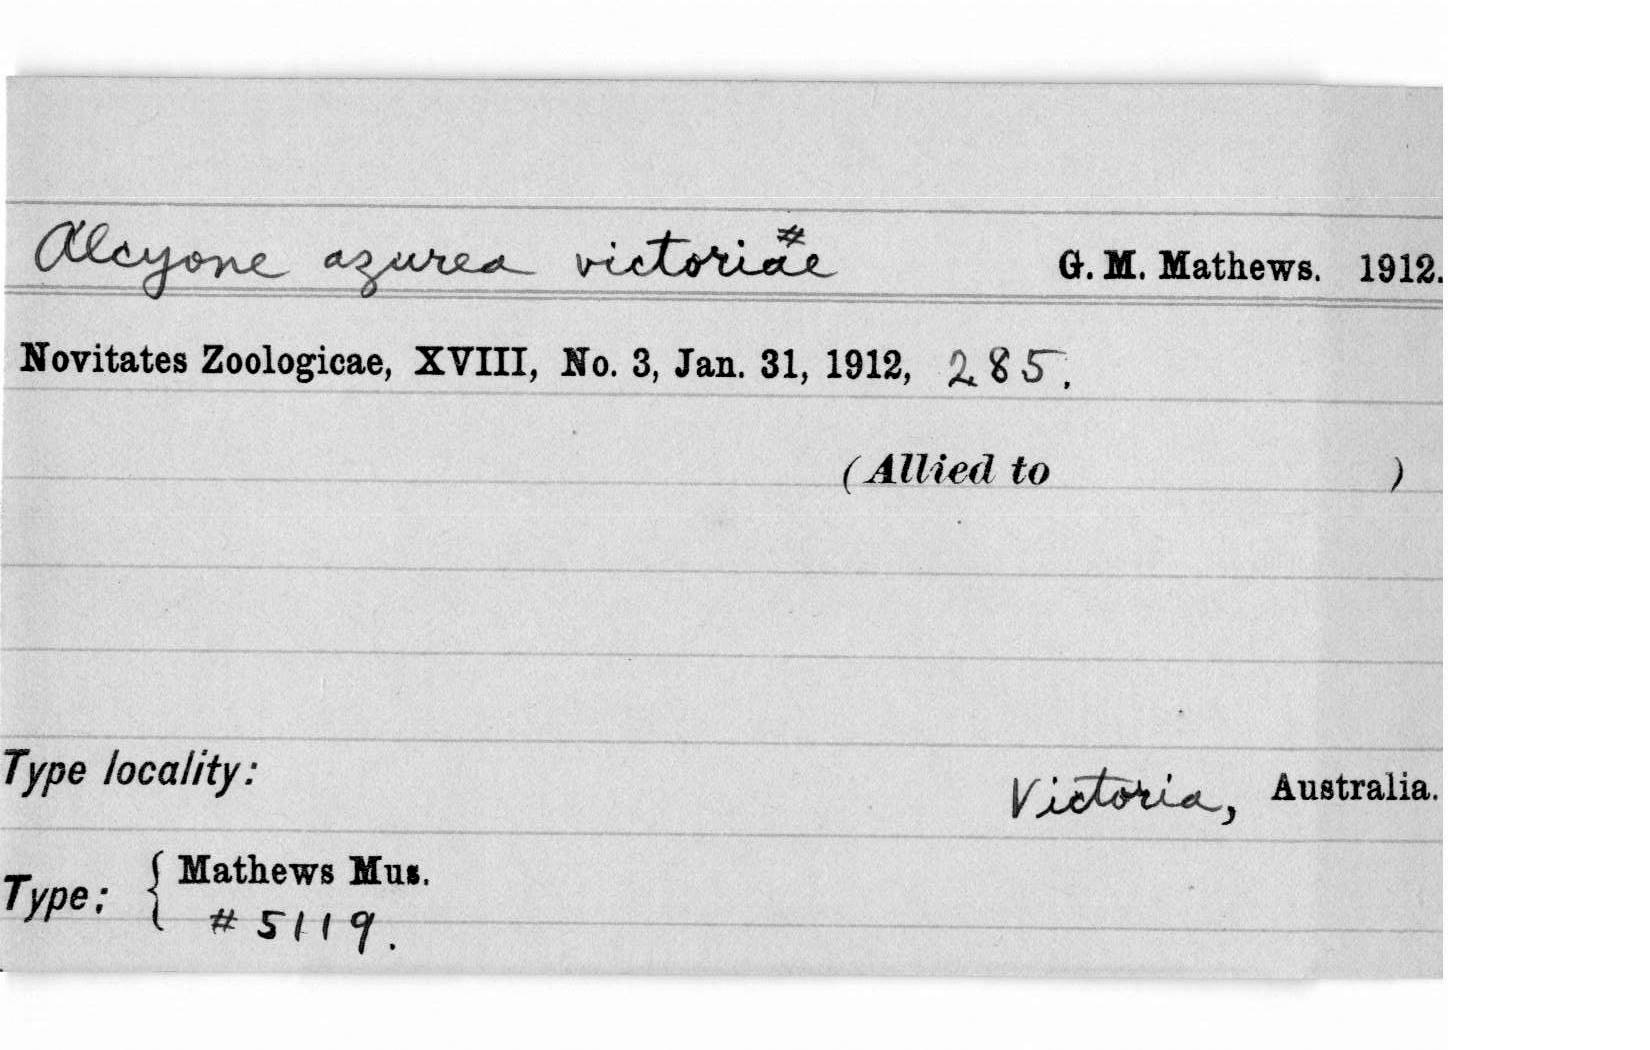 Alcyone azurea victoriae# G. M. Mathews. 1912.
Novitates Zoologicae, XVIII, No. 3, Jan. 31, 1912, 285.
(Allied to )
Type locality: Victoria, Australia.
Type: { Mathews Mus.
# 5119.